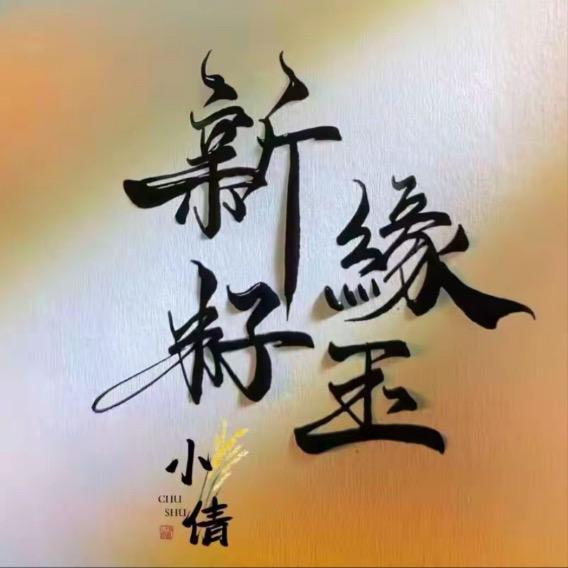 新籽
緣玉
小倩
CHU
SHU